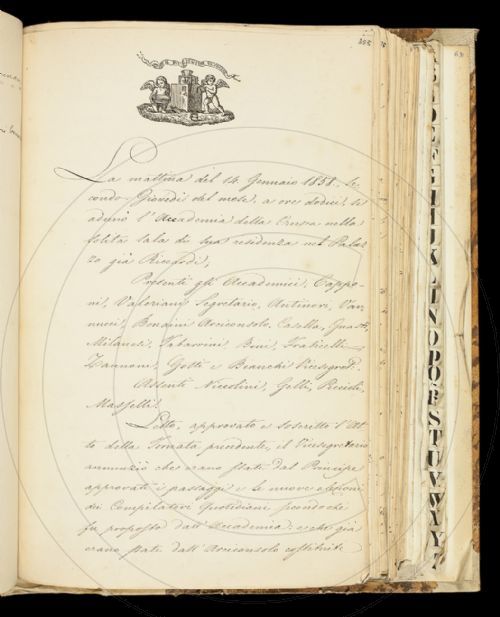 La mattina del 14. Gennaio 1858, se-
condo Giovedì del mese, a ore dodici, si
adunò l'Accademia della Crusca nella
solita sala di sua residenza nel Palaz-
zo già Riccardi,
Presenti gli Accademici, Cappo-
ni, Valeriani Segretario, Antinori, Van-
nucci, Bonaini Arciconsolo, Casella, Guasti,
Milanesi, Tabarrini, Bini, Fraticelli,
Zannoni, Gotti e Bianchi Vicesegret.
Assenti Niccolini, Gelli,
Maffelli.
Letto, approvato e soscritto l'At-
to della Tornata precedente, il Vicesegretario
annunziò che erano state dal Principe
approvati i passaggi e le nuove elezioni
dei Compilatori Quotidiani secondo che
fu proposto dall'Accademia: e che già
erano state dall'Arciconsolo costituite